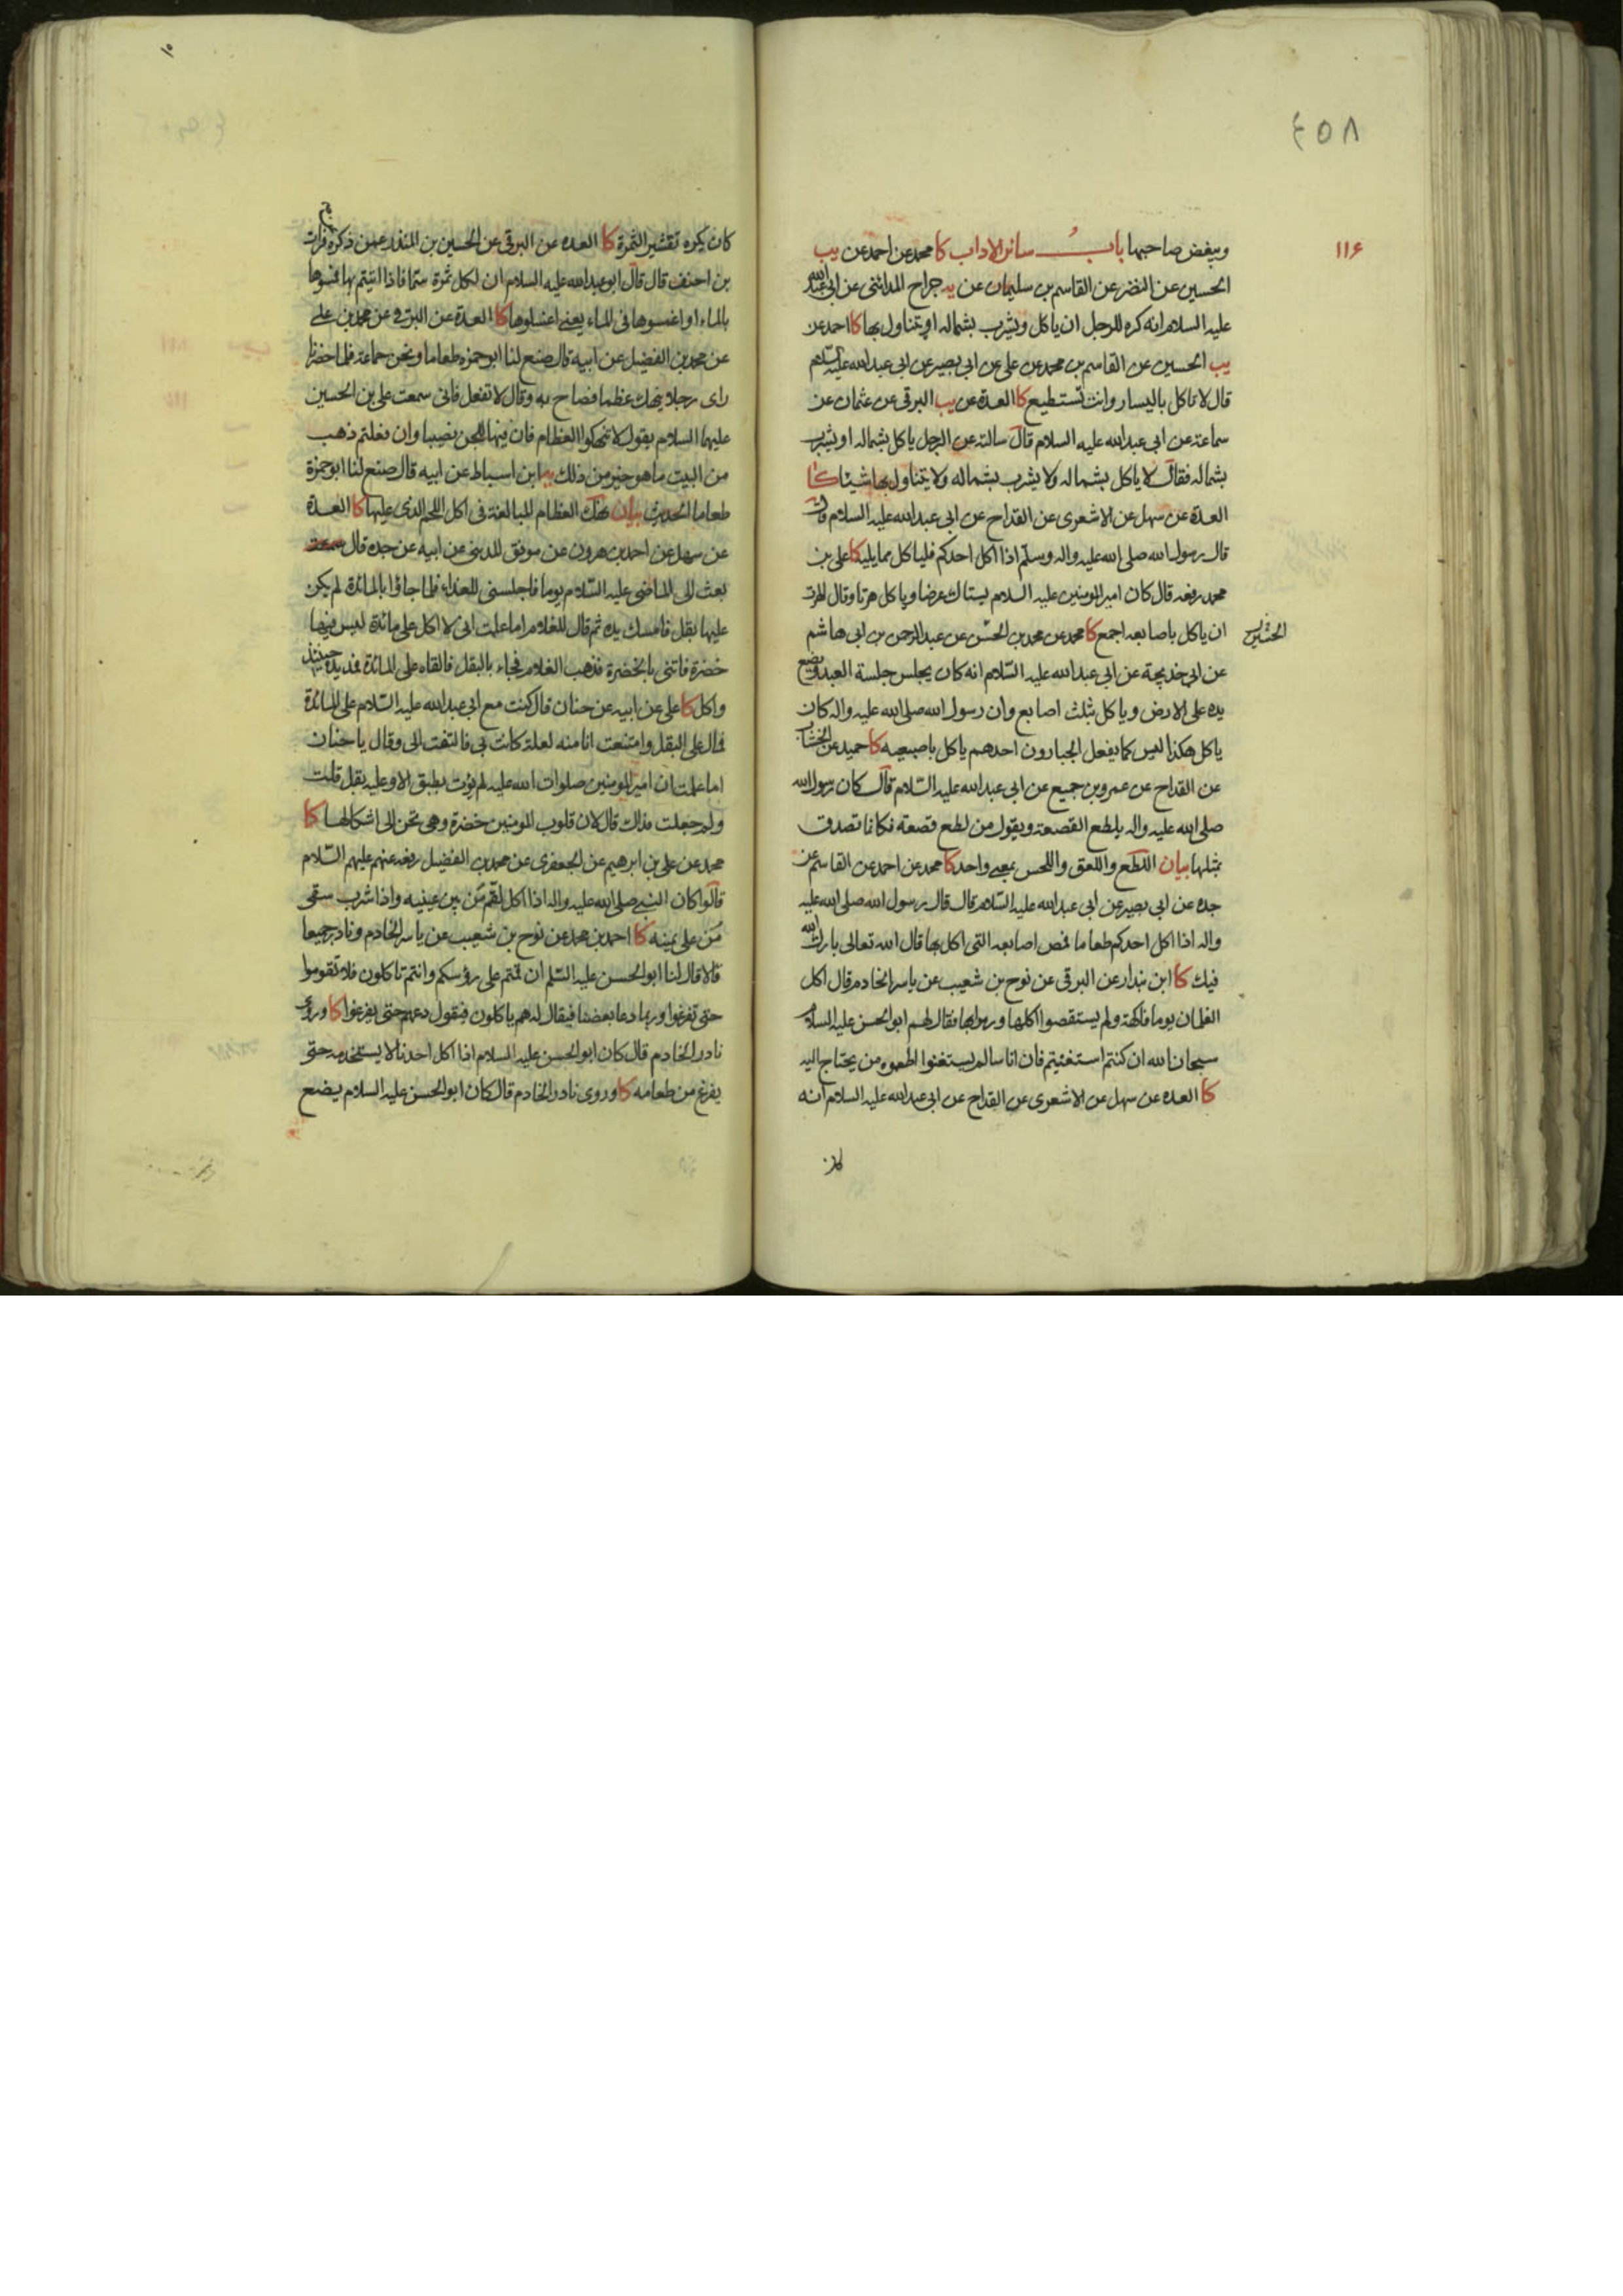 ٤٥٨
١١۶
ويبغض صاحبها باب سائر الاداب كا محمد عن احمد عن يب
الحسين عن النضر عن القاسم بن سليمان عن يه جراح المدائنى عن ابى عبدالله
عليه السلام انه كره للرجل ان ياكل ويشرب بشماله او يتناول بها كا احمد عن
يب الحسين عن القاسم بن محمد عن على عن ابى بصير عن ابى عبدالله عليه السلام
قال لا تاكل باليسار وانت تستطيع كا العدة عن يب البرقى عن عثمان عن
سماعة عن ابى عبدالله عليه السلام قال سالته عن الرجل ياكل بشماله او يشرب
بشماله فقال لا ياكل بشماله ولا يشرب بشماله ولا يتناول بها شيئا كا
العدة عن سهل عن الاشعرى عن القداح عن ابى عبدالله عليه السلام قال
قال رسول الله صلى الله عليه واله وسلم اذا اكل احدكم فلياكل مما يليه كا على بن
محمد رفعه قال كان امير المومنين عليه السلام يستاك عرضا وياكل هرتا وقال الهرت
ان ياكل باصابعه اجمع كا محمد عن محمد بن الحسن عن عبدالرحمن بن ابى هاشم
عن ابى خديجة عن ابى عبدالله عليه السلام انه كان يجلس جلسة العبد ويضع
يده على الارض وياكل بثلث اصابع وان رسول الله صلى الله عليه واله كان
ياكل هكذا ليس كما يفعل الجبارون احدهم ياكل باصبعيه كا حميد عن الخشاب
عن القداح عن عمرو بن جميع عن ابى عبدالله عليه السلام قال كان رسول الله
صلى الله عليه واله يلطع القصعة ويقول من لطع قصعة فكانما تصدق
بمثلها بيان اللطع واللعق واللحس بمعنى واحد كا محمد عن احمد عن القاسم عن
جده عن ابى بصير عن ابى عبدالله عليه السلام قال قال رسول الله صلى الله عليه
واله اذا اكل احدكم طعاما فمص اصابعه التى اكل بها قال الله تعالى بارك الله
فيك كا ابن بندار عن البرقى عن نوح بن شعيب عن ياسر الخادم قال اكل
الغلمان يوما فاكهة ولم يستقصوا اكلها ورموا بها فقال لهم ابو الحسن عليه السلام
سبحان الله ان كنتم استغنيتم فان اناسا لم يستغنوا اطعموه من يحتاج اليه
كا العدة عن سهل عن الاشعرى عن القداح عن ابى عبدالله عليه السلام انه
كان يكره تقشير الثمرة كا العدة عن البرقى عن الحسين بن المنذر عمن ذكره فرات
بن احنف قال قال ابو عبدالله عليه السلام ان لكل ثمرة سما فاذا اتيتم بها فمسوها
بالماء او اغمسوها فى الماء يعنى اغسلوها كا العدة عن البرقى عن محمد بن على
عن محمد بن الفضيل عن ابيه قال صنع لنا ابو حمزة طعاما ونحن جماعة فلما حضرنا
راى رجلا ينهك عظما فصاح به وقال لا تفعل فانى سمعت على بن الحسين
عليهما السلام يقول لا تنهكوا العظام فان فيها للجن نصيبا وان فعلتم ذهب
من البيت ما هو خير من ذلك يه ابن اسباط عن ابيه قال صنع لنا ابو حمزة
طعاما الحديث بيان نهك العظام المبالغة فى اكل اللحم الذى عليها كا العدة
عن سهل عن احمد بن هرون عن موفق المدينى عن ابيه عن جده قال
بعث الى الماضى عليه السلام يوما فاجلسنى للغداء فلما جاؤا بالمائدة لم يكن
عليها بقل فامسك يده ثم قال للغلام اما علمت انى لا اكل على مائدة ليس فيها
خضرة فاتنى بالخضرة فذهب الغلام فجاء بالبقل فالقاه على المائدة فمد يده حينئذ
واكل كا على عن ابيه عن حنان قال كنت مع ابى عبدالله عليه السلام على المائدة
فمال على البقل وامتنعت انا منه لعلة كانت بى فالتفت الى وقال يا حنان
اما علمت ان امير المومنين صلوات الله عليه لم يؤت بطبق الا وعليه بقل قلت
ولم جعلت فداك قال لان قلوب المومنين خضرة وهى تحن الى اشكالها كا
محمد عن على بن ابرهيم عن الجعفرى عن محمد بن الفضيل رفعه عنهم عليهم السلام
قالوا كان النبى صلى الله عليه واله اذا اكل لقم من بين عينيه واذا شرب سقى
من على يمينه كا احمد بن محمد عن نوح بن شعيب عن ياسر الخادم ونادر جميعا
قالا قال لنا ابو الحسن عليه السلم ان قمت على رؤسكم وانتم تاكلون فلا تقوموا
حتى تفرغوا وربما دعا بعضنا فيقال له هم ياكلون فيقول دعهم حتى يفرغوا كا وروى
نادر الخادم قال كان ابو الحسن عليه السلام اذا اكل احدنا لا يستخدمه حتى
يفرغ من طعامه كا وروى نادر الخادم قال كان ابو الحسن عليه السلام يضع